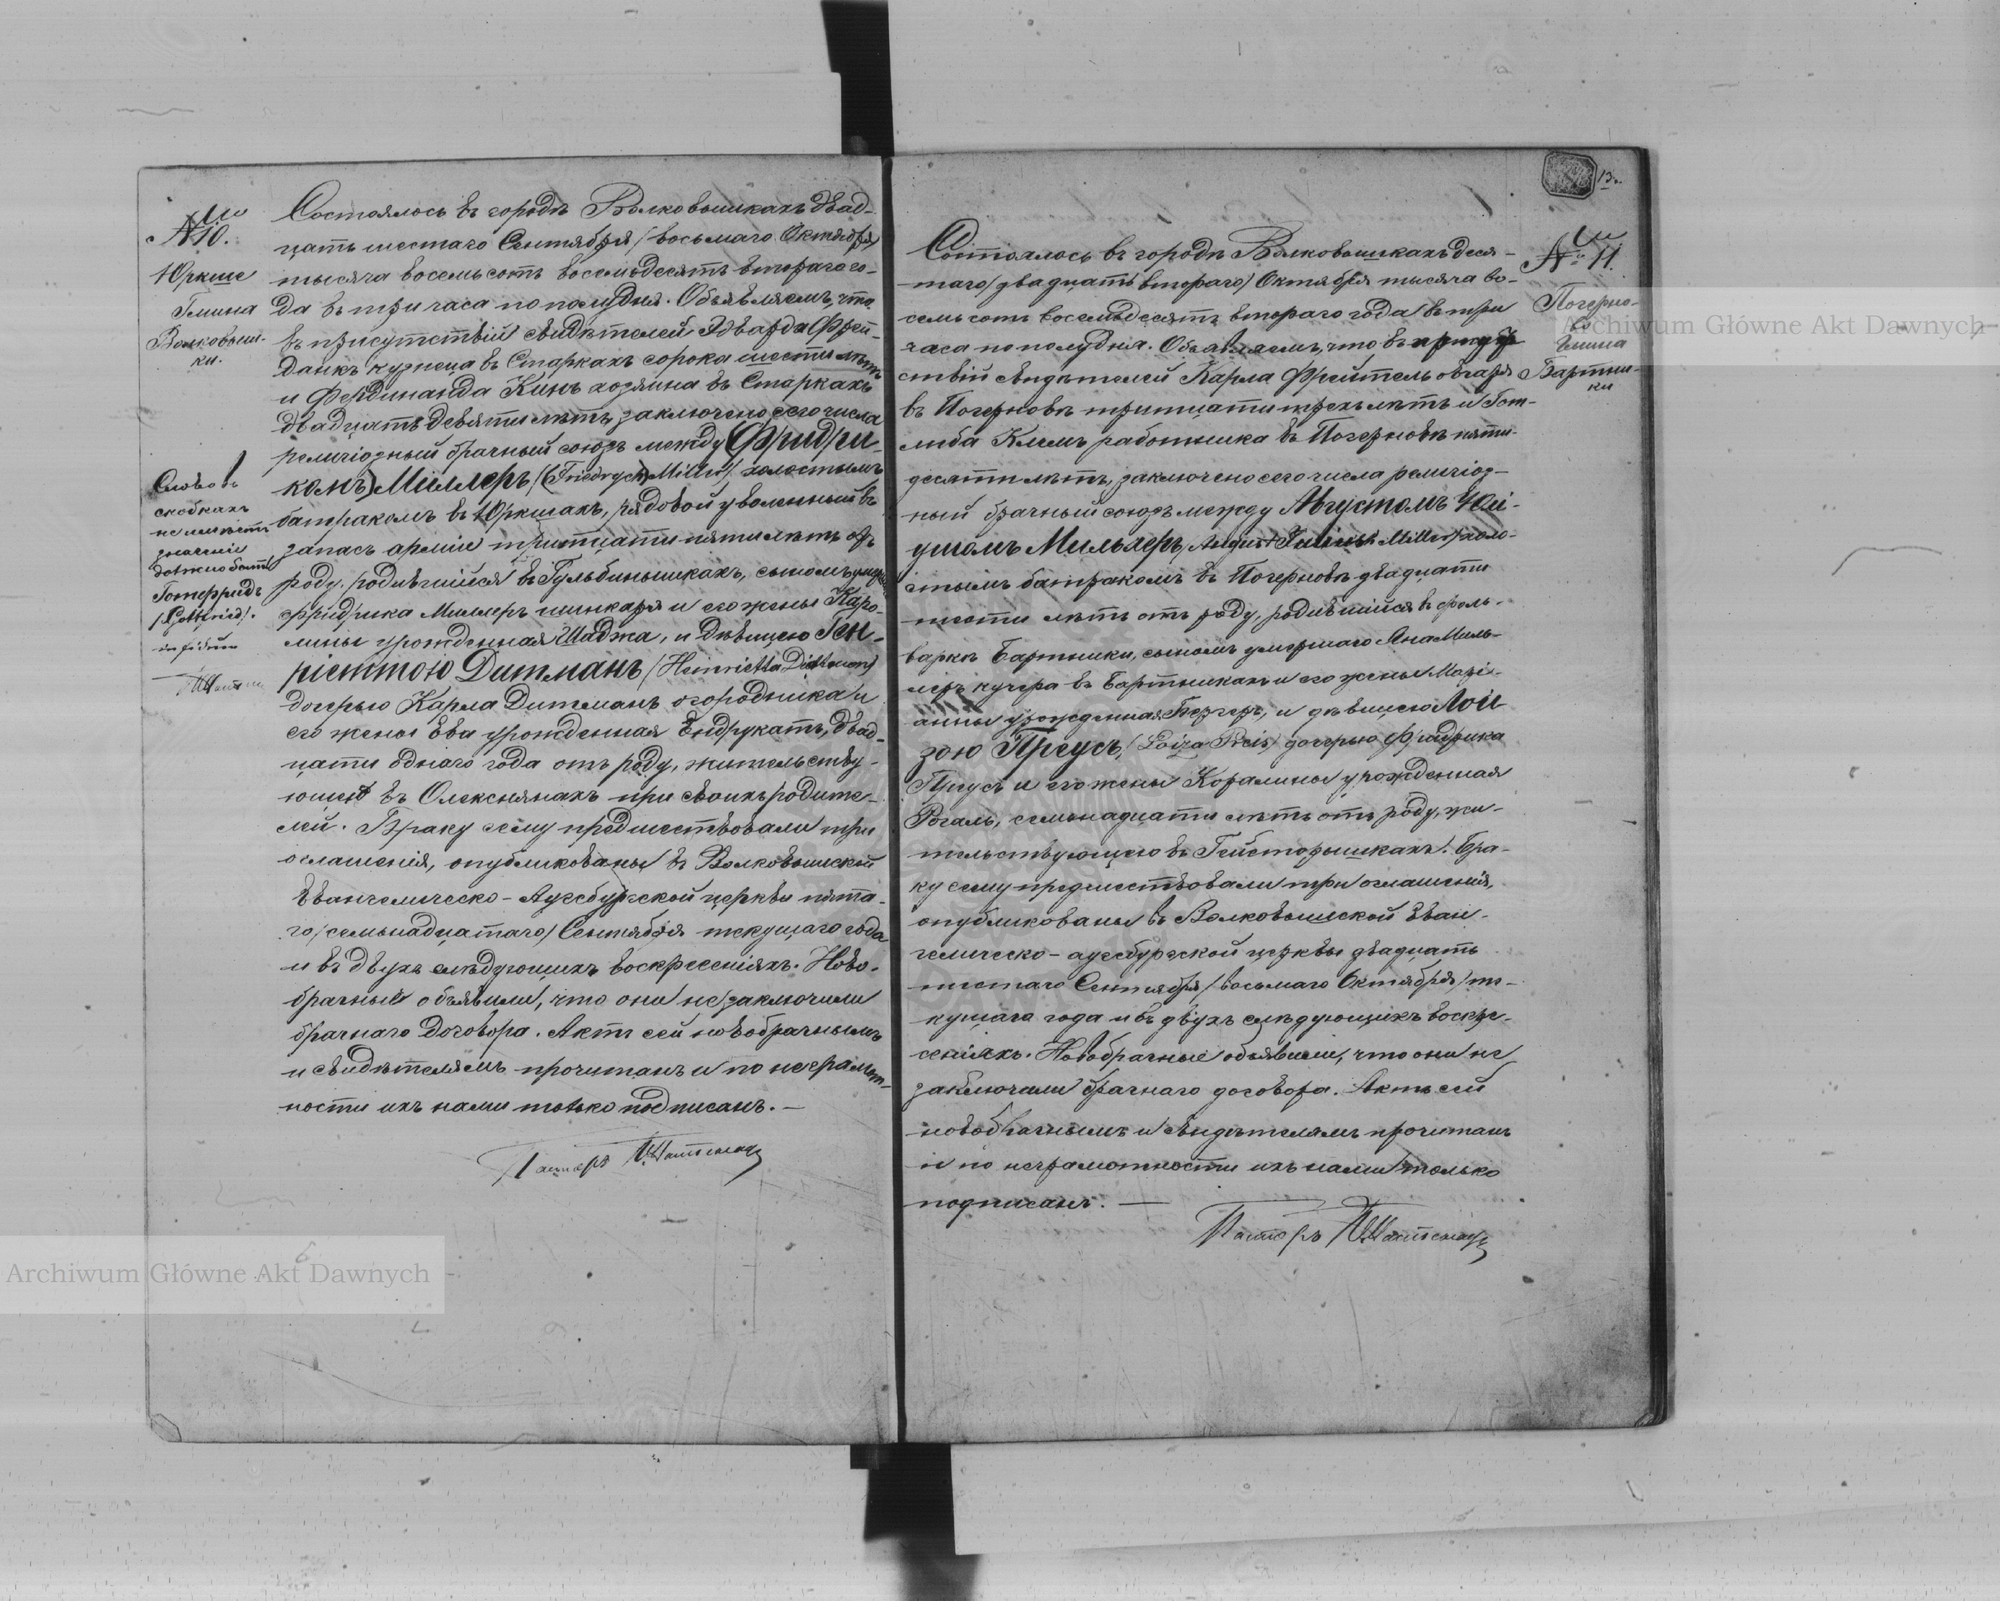 № 10.
Юркше
Гмина
Волковыш-
ки.
Состоялось въ городѣ Волковышкахъ двад-
цать шестаго Сентября /восьмаго Октября/
тысяча восемьсотъ восемьдесятъ втораго го-
да въ три часа по полудня. Объявляемъ, что
въ присутствіи свидѣтелей Эдварда Фрей-
данкъ кузнеца въ Старкахъ сорока шести лѣтъ
и Фердинанда Кинъ хозяина въ Старкахъ
двадцать девяти лѣтъ, заключено сего числа
религіозный брачный союзъ между (Фридри-
комъ) Миллеръ, /(Friedrych) Miller/ холостымъ
батракомъ въ Юркшахъ, рядовой уволенный въ
запасъ арміи тритцати пяти лѣтъ отъ
роду, родившійся въ Гульбинышкахъ, сыномъ
Фридрика Миллеръ шинкаря и его жены Каро-
лины урожденная Шаджа, и дѣвицею Ген-
ріеттою Дитманъ /Heinrietta Dittman/
дочерью Карла Дитманъ огородника и
его жены Ева урожденная Ендрукатъ, двад-
цати однаго года отъ роду, жительству-
ющею въ Олекснянахъ при своихъ родите-
лей. Браку сему предшествовали три
оглашенія, опубликованы въ Волковышской
Евангелическо-Аугсбургской церкви пята-
го /семьнадцатаго/ Сентября текущаго года
и въ двухъ слѣдующихъ воскресеніяхъ. Ново-
брачные объявили, что они не заключили
брачнаго договора. Актъ сей новобрачнымъ
и свидѣтелямъ прочитанъ и по неграмот-
ности ихъ нами только подписанъ. —
Пасторъ
Слово въ
скобкахъ
не имѣетъ
значенія
должно быть
Готфридъ
/Gottfried/.
13.
№ 11.
Почерно-
во
Гмина
Бартни-
ки
Состоялось въ городѣ Волковышкахъ деся-
таго /двадцать втораго/ Октября тысяча во-
семьсотъ восемьдесятъ втораго года въ три
часа по полудня. Объявляемъ, что въ присут-
ствіи свидѣтелей Карла Фрейтель овчаря
въ Почерновѣ тритцати трехъ лѣтъ и Гот-
либа Клемъ работника въ Почерновѣ пяти-
десяти лѣтъ, заключено сего числа религіоз-
ный брачный союзъ между Августомъ Юлі-
ушомъ Мильлеръ /August Julius Miller/ холо-
стымъ батракомъ въ Почерновѣ двадцати
шести лѣтъ отъ роду, родившійся въ фоль-
варкѣ Бартники, сыномъ умершаго Яна Миль-
леръ кучера въ Бартникахъ и его жены Марі-
анны урожденная Бергеръ, и дѣвицею Лой-
зою Прeусъ, /Loiza Preis/ дочерью Фридрика
Преусъ и его жены Каралины урожденная
Рогаль, семьнадцати лѣтъ отъ роду, жи-
тельствующею въ Гейсторышкахъ. Бра-
ку сему предшествовали три оглашенія,
опубликованы въ Волковышской Еван-
гелическо-аугсбургской церквы двадцать
шестаго Сентября /восьмаго Октября/ те-
кущаго года и въ двухъ слѣдующихъ воскре-
сеніяхъ. Новобрачные объявили, что они не
заключили брачнаго договора. Актъ сей
новобрачнымъ и свидѣтелямъ прочитанъ
и по неграмотности ихъ нами только
подписанъ. —
Пасторъ
Archiwum Główne Akt Dawnych
Archiwum Główne Akt Dawnych